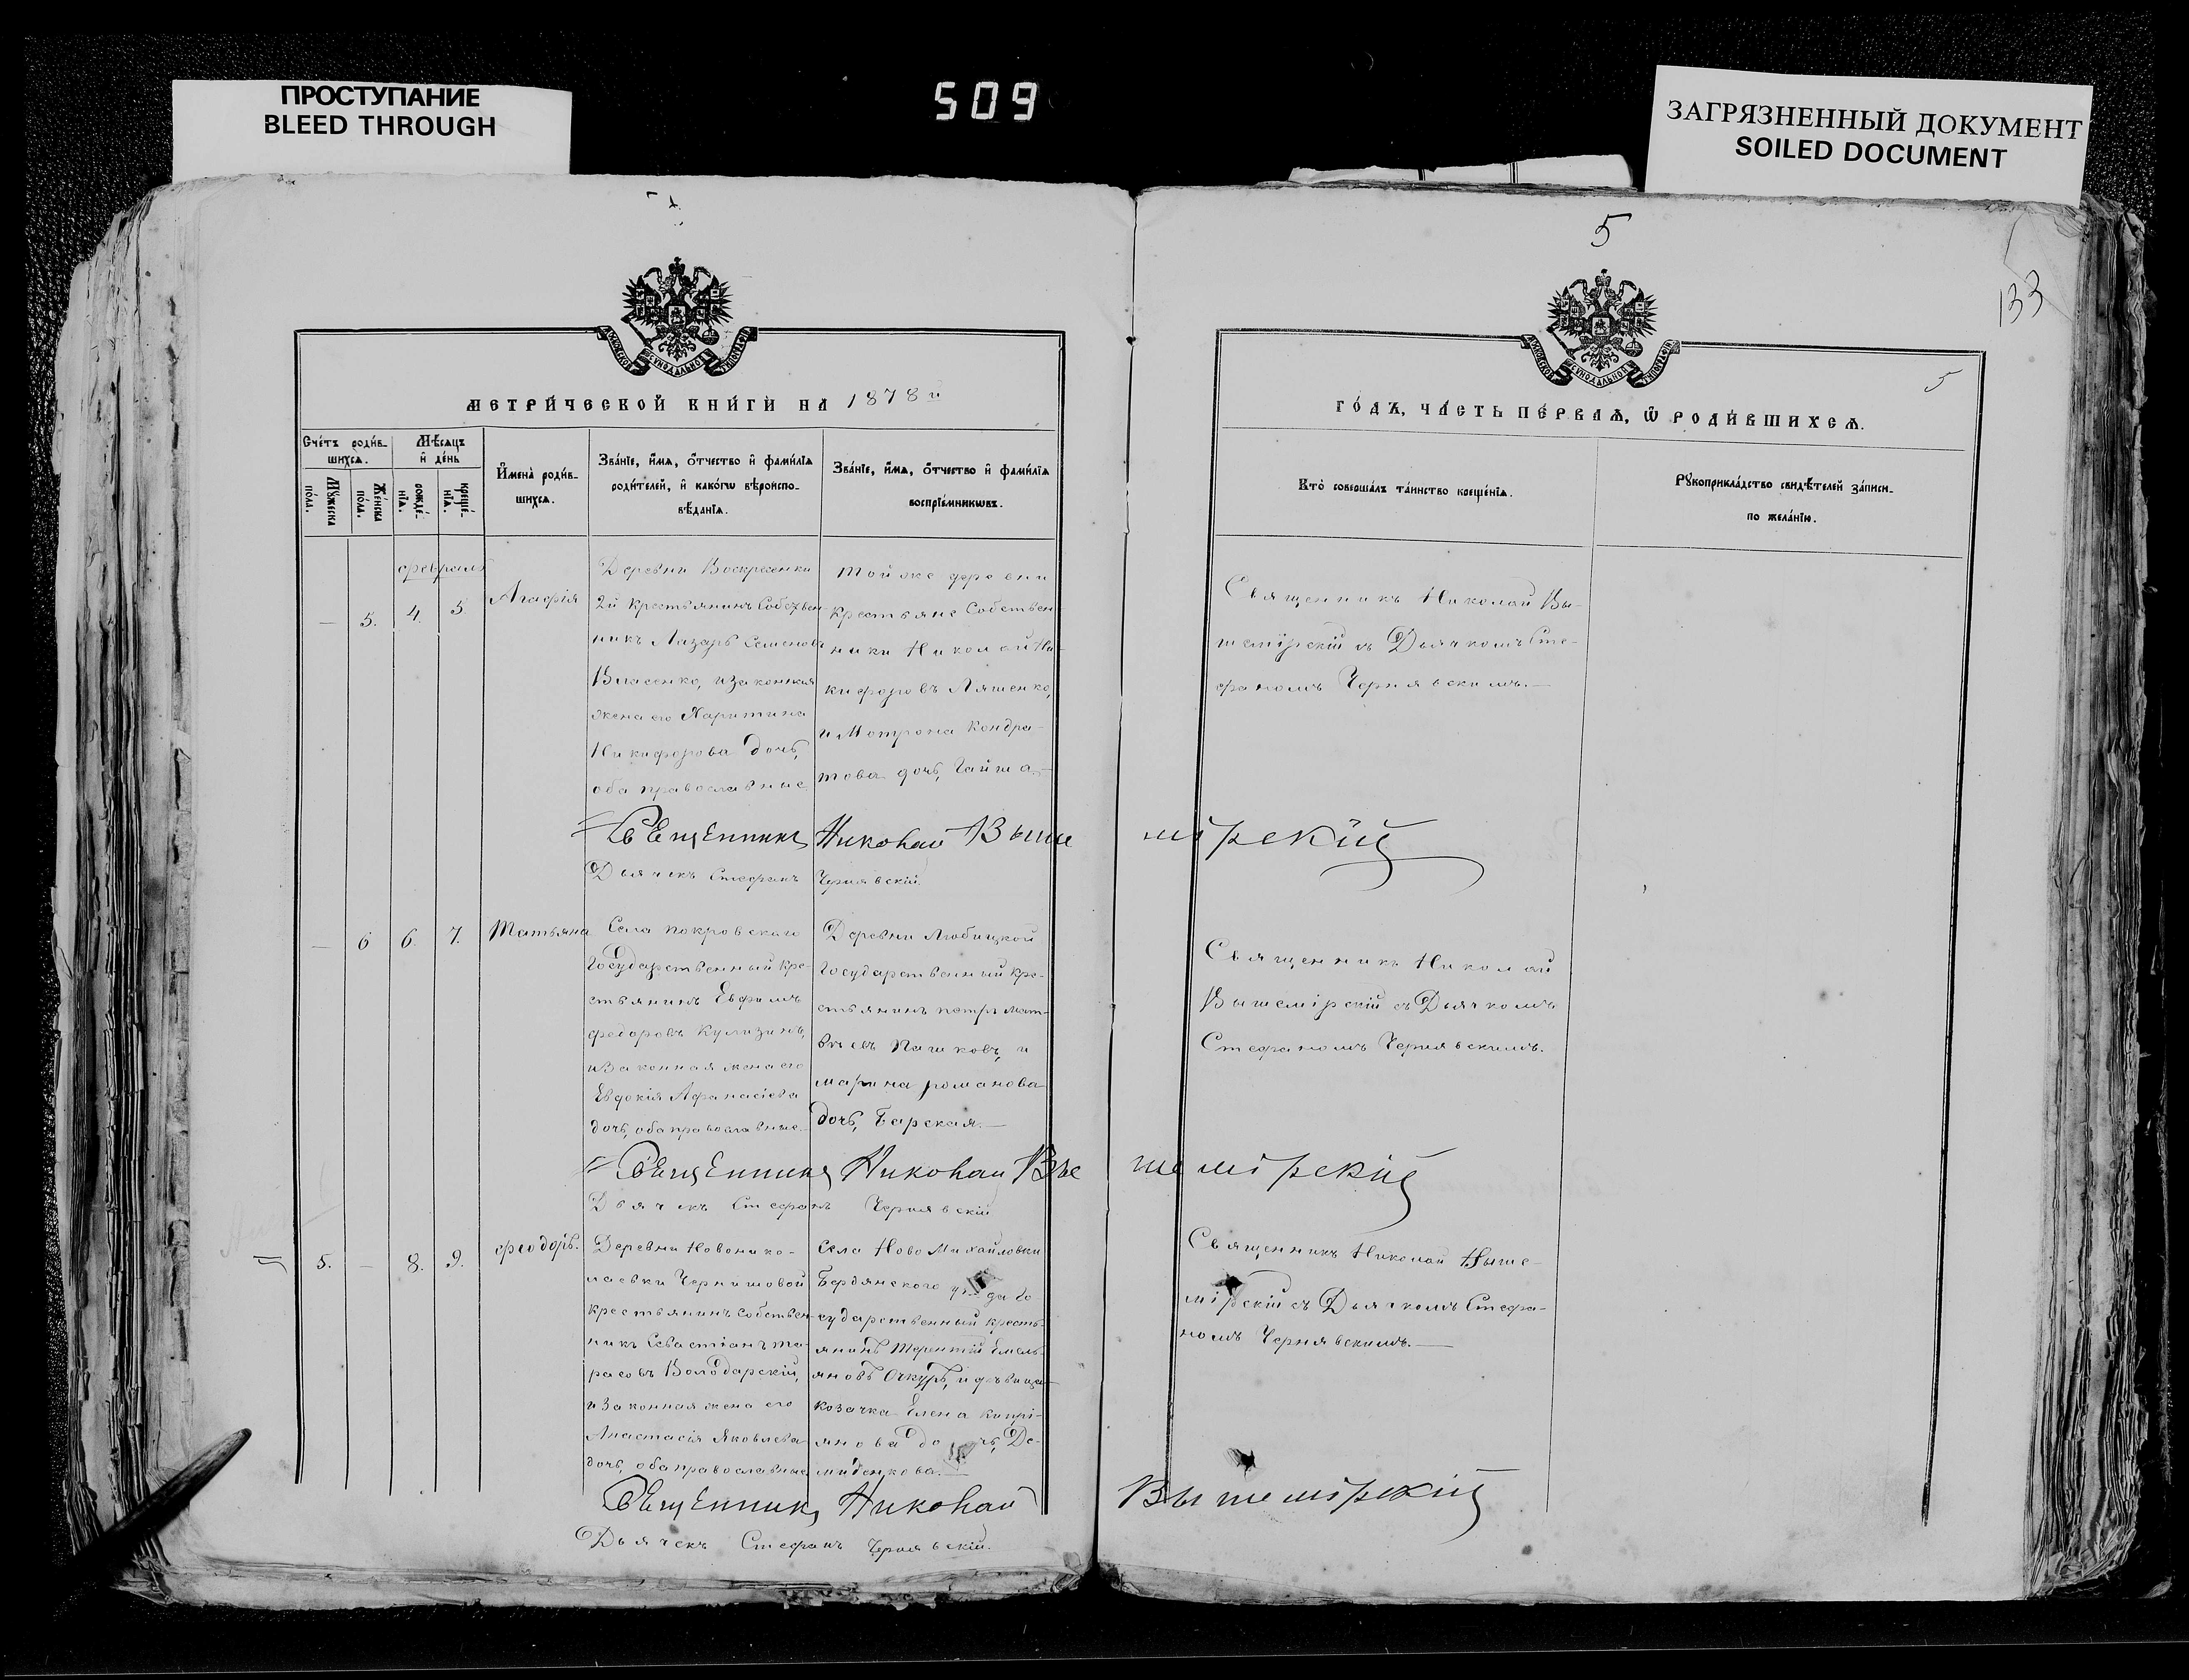 ПРОСТУПАНИЕ
BLEED THROUGH
509
ЗАГРЯЗНЕННЫЙ ДОКУМЕНТ
SOILED DOCUMENT
5
133
5
МЕТРИ́ЧЕСКОЙ КНИ́ГИ НА 1878 й
Сче́тъ роди́в-
шихсѧ.
Мѣ́сѧцъ
и҆ де́нь
Мꙋ́жеска
по́ла.
Же́нска
по́ла.
рожде́-
нїѧ.
креще́-
нїѧ.
И҆мена̀ роди́в-
шихсѧ.
Зва́нїе, и҆́мѧ, ѻ҆́тчество и҆ фами́лїѧ
роди́телей, и҆ како́гѡ вѣроиспо-
вѣ́данїѧ.
Зва́нїе, и҆́мѧ, ѻ҆́тчество и҆ фами́лїѧ
воспрїе́мникѡвъ.
ГО́ДЪ, ЧА́СТЬ ПЕ́РВАѦ, Ѽ РОДИ́ВШИХСѦ.
Кто̀ соверша́лъ та́инство креще́нїѧ.
Рꙋкоприкла́дство свидѣ́телей за́писи
по жела́нїю.
февраль
— 5. 4. 5 Агафія
Деревни Воскресенки
2й Крестьянинъ Собствен-
никъ Лазарь Семеновъ
Власенко, изаконная
жена его Харитина
Никифорова дочь,
оба православные
тойже деревни
крестьяне Собствен-
ники Николай Ни-
кифоровъ Ляшенко,
и Мотрона Кондра-
това дочь,
Священникъ Николай Вы-
шемірскій съ Дьячкомъ Сте-
фаномъ Чернявскимъ.—
Священникъ Николай Вышемірскій
Дьячекъ Стефанъ Чернявскій.
— 6 6. 7. Татьяна
Села покровскаго
Государственный кре-
стьянинъ Евфимъ
федоровъ Кулизинъ,
изаконная жена его
Евдокія Афанасіева
дочь, оба православные.—
Деревни Любицкой
Государственный кре-
стьянинъ петръ мат-
вѣевъ Пашковъ, и
марина романова
дочь, Барская.—
Священникъ Николай
Вышемірскій съ Дьячкомъ
Стефаномъ Чернявскимъ.
Священникъ Николай Вышемірскій
Дьячекъ Стефанъ Чернявскій
5. — 8. 9. феодоръ.
Деревни Новонико-
лаевки Чернишовой
крестьянинъ собствен-
никъ Севастіанъ та-
расовъ Володарскій,
изаконная жена его
Анастасія Яковлева
дочь, оба православные
Села Ново Михайловки
Бердянского уѣзда Го-
сударственный кресть-
янинъ Терентій Емель-
яновъ Очкуръ, и дѣвица
козачка Елена Кипрі-
янова дочь, Де-
миденкова.—
Священникъ Николай Выше-
мірскій съ Дьячкомъ Стефа-
номъ Чернявскимъ.—
Священникъ Николай Вышемірскій
Дьячекъ Стефанъ Чернявскій.